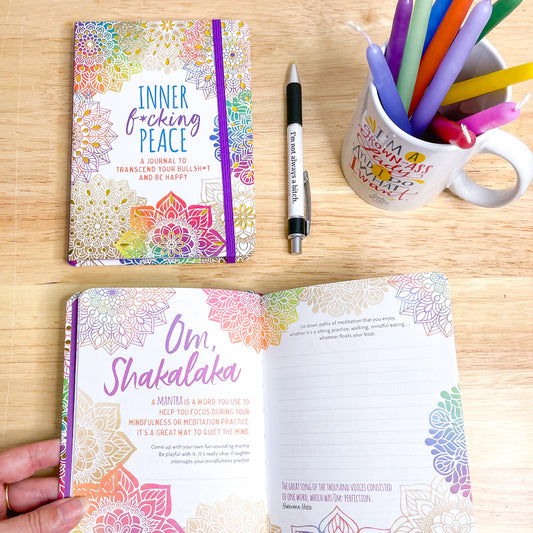 INNER
f*cking
PEACE
A JOURNAL TO
TRANSCEND YOUR BULLSH*T
AND BE HAPPY
I'm not always a bitch.
I'M A
GROWN-ASS
AND I DO
WHAT
I want
Om,
Shakalaka
A MANTRA IS A WORD YOU USE TO
HELP YOU FOCUS DURING YOUR
MINDFULNESS OR MEDITATION PRACTICE.
IT'S A GREAT WAY TO QUIET THE MIND.
Come up with your own fun-sounding mantra.
Be playful with it. It's really okay if laughter
interrupts your mindfulness practice.
Jot down paths of meditation that you enjoy,
whether it's a sitting practice, walking, mindful eating...
whatever floats your boat.
THE GREAT SONG OF THE THOUSAND VOICES CONSISTED
OF ONE WORD, WHICH WAS OM: PERFECTION.
Hermann Hesse